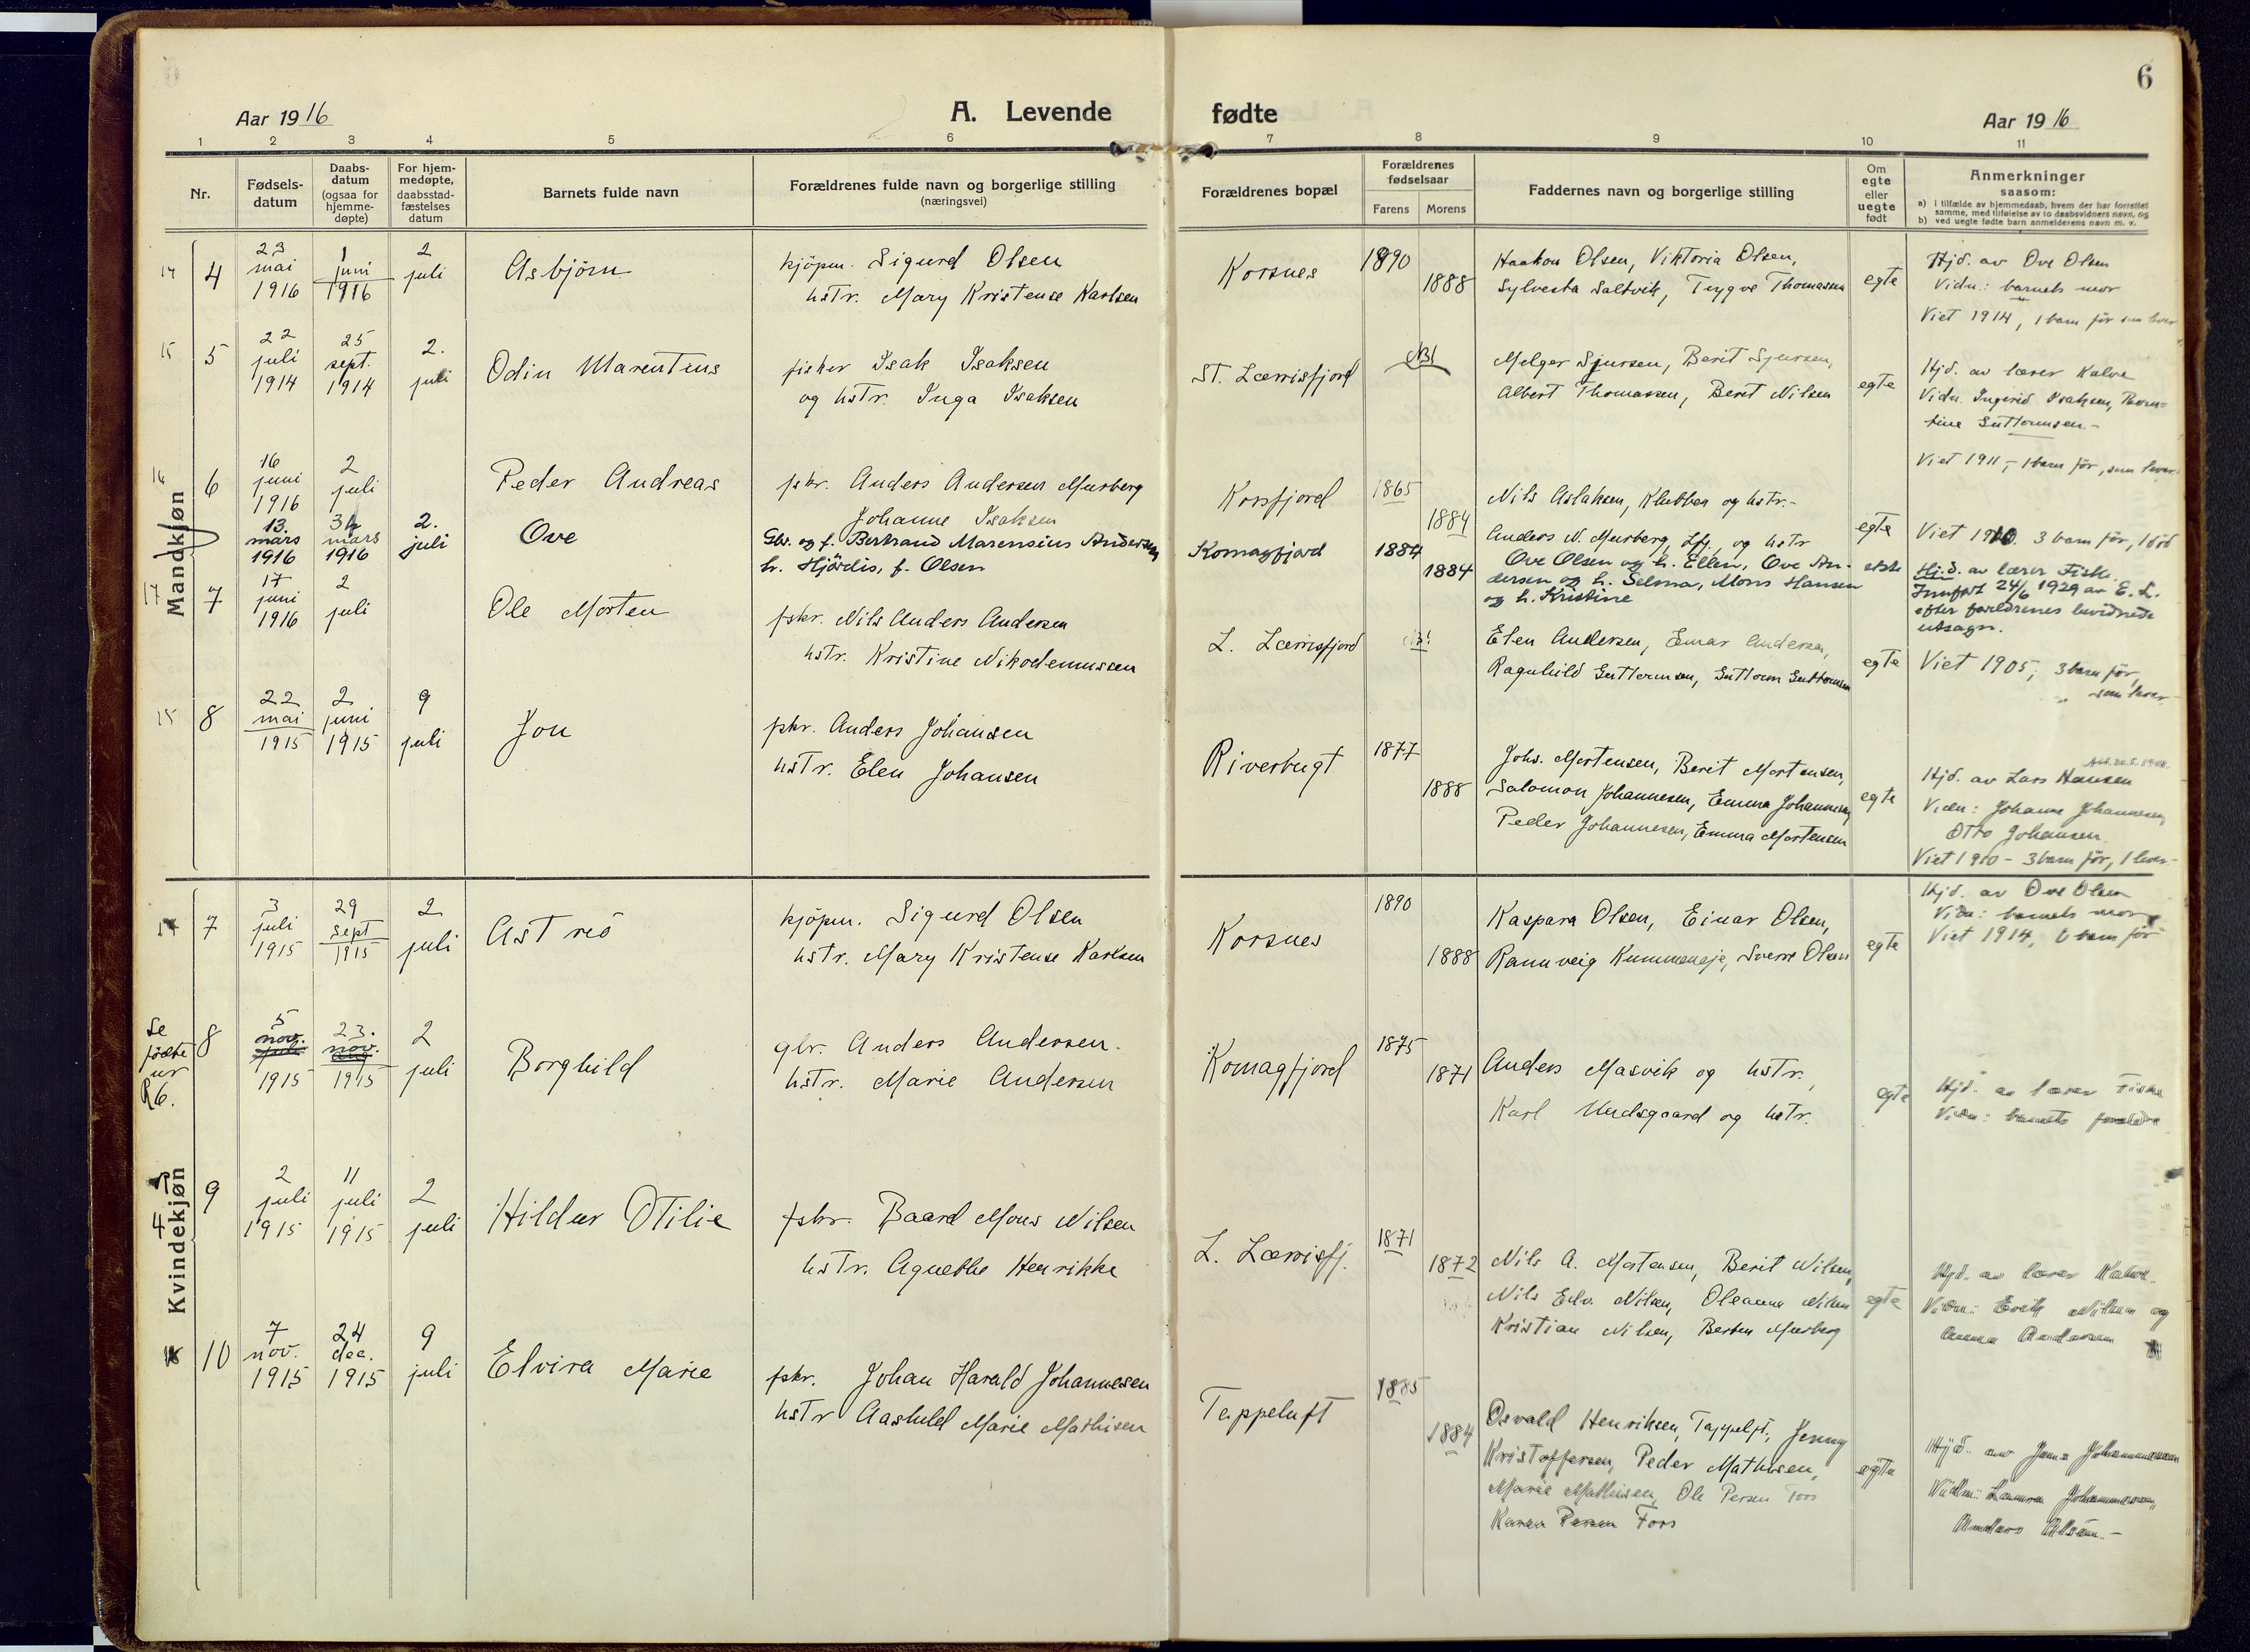 6
Aar 1916
A. Levende fødte
Aar 1916
1 2 3 4 5 6 7 8 9 10 11
Nr.
Fødsels-
datum
Daabs-
datum
(ogsaa for
hjemme-
døpte)
For hjem-
medøpte,
daabsstad-
fæstelses
datum
Barnets fulde navn
Forældrenes fulde navn og borgerlige stilling
(næringsvei)
Forældrenes bopæl
Forældrenes
fødselsaar
Farens Morens
Faddernes navn og borgerlige stilling
Om
egte
eller
uegte
født
Anmerkninger
saasom:
a) i tilfælde av hjemmedaab, hvem der har forrettet
samme, med tilføielse av to daabsvidners navn, og
b) ved uegte fødte barn anmelderens navn m. v.
Mandkjøn
14 4
23 mai 1916
1 juni 1916
2 juli
Asbjörn
kjöpm. Sigurd Olsen
hstr. Mary Kristense Karlsen
Korsnes
1890
1888
Haakon Olsen, Viktoria Olsen,
Sylvesta Saltvik, Trygve Thomassen
egte
Hjd. av Ove Olsen
Vidn.: barnets mor
Viet 1914, 1 barn för som lever
15 5
22 juli 1914
25 sept. 1914
2. juli
Odin Marentius
fisker Isak Isaksen
og hstr. Inga Isaksen
St. Lerrisfjord
NB!
Melger Sjursen, Berit Sjursen,
Albert Thomassen, Beret Nilsen
egte
Hjd. av lærer Kalve
Vidn. Ingerid Isaksen,
Guttormsen -
Viet 1911, - 1 barn för, som lever.
16 6
16 juni 1916
2 juli
Peder Andreas
fskr. Anders Andersen Murberg
Johanne Isaksen
Korsfjord
1865
1884
Nils Aslaksen, Klubben og hstr. -
Anders N. Murberg, Lfj, og hstr
egte
Viet 1910. 3 barn för, 1 död
13. mars 1916
mars 1916
2. juli
Ove
Gbr. og f. Bertrand Marensius Andersen
h. Hjördis, f. Olsen
Komagfjord
1884
1884
Ove Olsen og h. Ellen, Ove An-
dersen og h. Selma, Mons Hansen
og h. Kristine
ekte
Hj.d. av lærer Fiske.
Innført 24/6 1929 av E. L.
efter foreldrenes bevidnede
utsagn.
17 7
17 juni 1916
2 juli
Ole Morten
fskr. Nils Anders Andersen
hstr. Kristine Nikodemussen
L. Lerrisfjord
NB!
Elen Andersen, Einar Andersen,
Ragnhild Guttormsen, Guttorm Guttormsen
egte
Viet 1905; 3 barn för,
som lever.
15 8
22 mai 1915
2 juni 1915
9 juli
Jon
fskr. Anders Johansen
hstr. Elen Johansen
Riverbugt
1877
1888
Johs. Mortensen, Berit Mortensen,
Salomon Johannesen, Emma Johannesen,
Peder Johannesen, Emma Mortensen
egte
Hjd. av Lars Hansen
Vidn: Johanne Johannesen,
Otto Johansen.
Viet 1910 - 3 barn för, 1 lever.
Kvindekjøn
7
3 juli 1915
29 sept 1915
2 juli
Astrid
kjöpm. Sigurd Olsen
hstr. Mary Kristense Karlsen
Korsnes
1890
1888
Kaspara Olsen, Einar Olsen,
Rannveig Kummeneje, Sverre Olsen
egte
Hjd. av Ove Olsen
Vidn: barnets mor
Viet 1914, 0 barn för
Se
födte
nr
R6.
8
5 nov. 1915
23. nov. 1915
2 juli
Borghild
gbr. Anders Andersen.
hstr. Marie Andersen
Komagfjord
1875
1871
Anders Masvik og hstr.,
Karl Undsgaard og hstr.
egte
Hjd. av lærer Fiske
Vidn: barnets forældre
4 9
2 juli 1915
11 juli 1915
2 juli
Hildur Otilie
fskr. Baard Mons Nilsen
hstr. Agnethe Henrikke
L. Lerrisfj.
1871
1872
Nils A. Mortensen, Berit Nilsen,
Nils Edv. Nilsen, Oleanna Nilsen
Kristian Nilsen, Berben Murberg
egte
Hjd. av lærer Kalve.
Vidn: Erik Nilsen og
Anna Andersen
10
7 nov. 1915
24 dec. 1915
9 juli
Elvira Marie
fskr. Johan Harald Johannesen
hstr Aashild Marie Mathisen
Tappeluft
1885
1884
Osvald Henriksen, Tappelft., Jenny
Kristoffersen, Peder Mathisen,
Marie Mathisen, Ole Persen Fors
Karen Persen Fors
egte
Hjd. av Johannesen
Vidn: Johannesen,
Anders